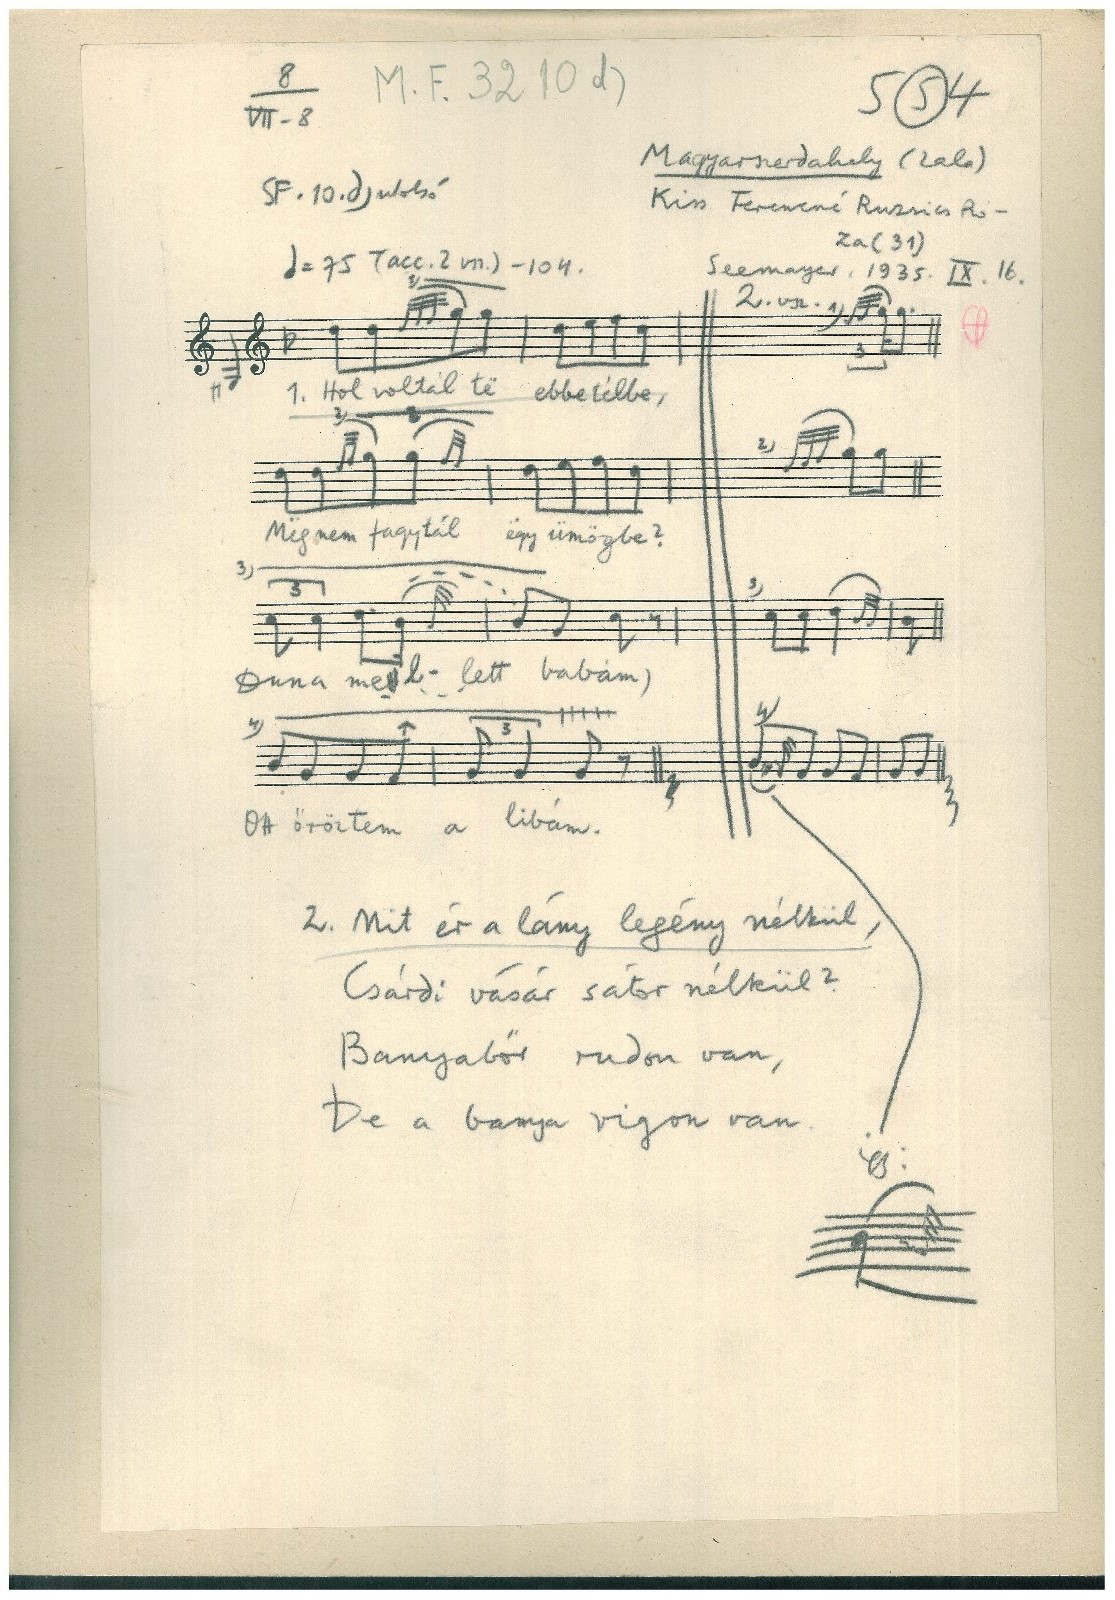 8
VII-8
M.F. 3210 d)
554
Magyarszerdahely (Zala)
SF. 10. d) utolsó
Kiss Ferencné Ruzsics Ró-
za (31)
♩= 75 (acc. 2 vn.) -104.
Seemayer, 1935. IX. 16.
2. vsz. 1)
3
1. Hol voltál të ebbetélbe,
2)
2)
Mëgnem fagytál ëgy ümögbe?
3)
3
3)
Duna mel- lett babám,
4)
3
4)
Ott őröztem a libám.
2. Mit ér a lány legény nélkül,
Csárdi vásár sátor nélkül?
Banyabőr rudon van,
De a banya vigon van.